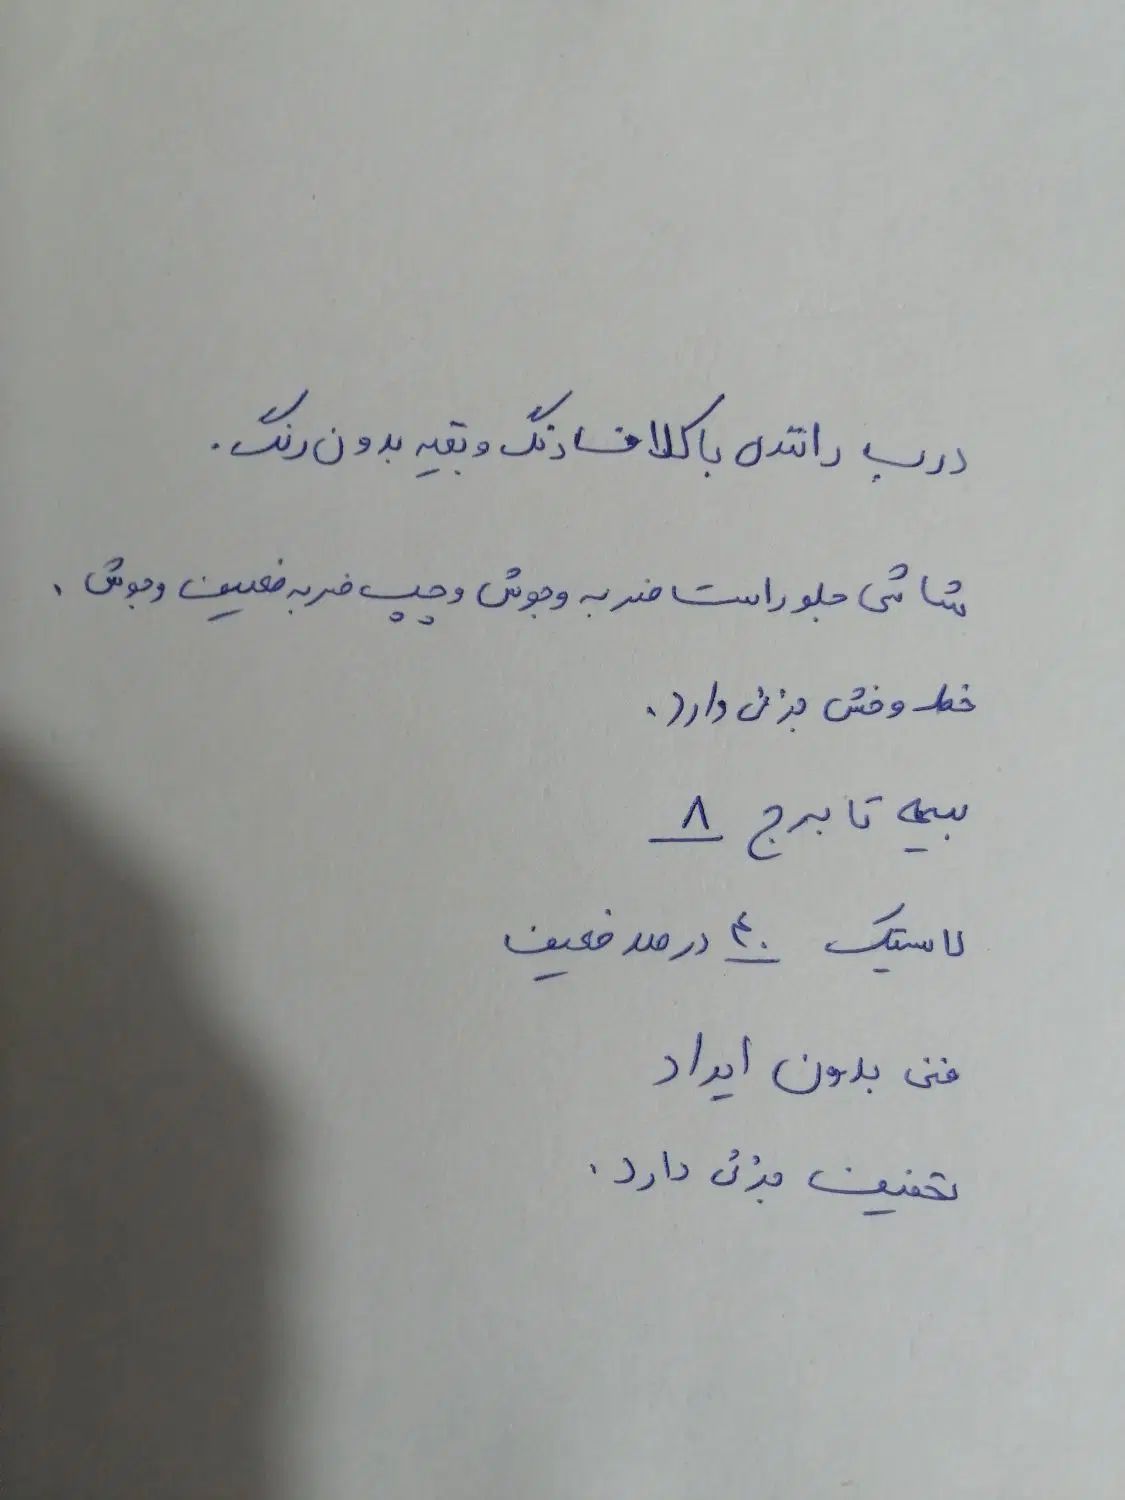 درب راننده با کلاف رنگ و بقیه بدون رنگ.
شاسی جلو راست ضربه و جوش و چپ ضربه ضعیف و جوش.
خط و خش جزئی دارد.
بیمه تا برج ۸
لاستیک ۴۰ درصد ضعیف
فنی بدون ایراد
تخفیف جزئی دارد.